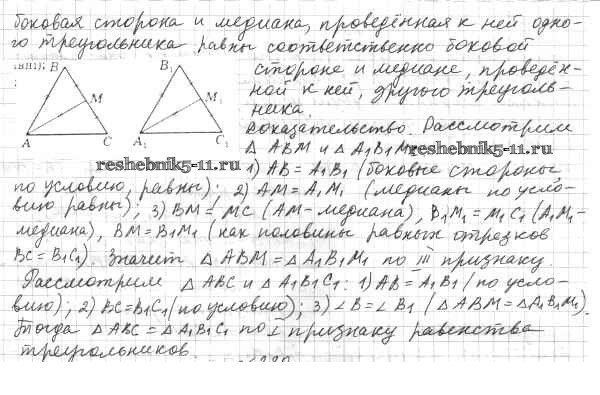 боковая сторона и медиана, проведённая к ней одно-
го треугольника равны соответственно боковой
стороне и медиане, проведён-
ной к ней, другого треуголь-
ника.
B
M
A
C
B₁
M₁
A₁
C₁
Доказательство. Рассмотрим
△ ABM и △ A₁B₁M₁
reshebnik5-11.ru
reshebnik5-11.ru
1) AB = A₁B₁ (боковые стороны
по условию, равны); 2) AM = A₁M₁ (медианы по усло-
вию равны); 3) BM = MC (AM - медиана), B₁M₁ = M₁C₁ (A₁M₁ -
медиана), BM = B₁M₁ (как половины равных отрезков
BC = B₁C₁). Значит △ ABM = △ A₁B₁M₁ по III признаку.
Рассмотрим △ ABC и △ A₁B₁C₁: 1) AB = A₁B₁ (по усло-
вию); 2) BC = B₁C₁ (по условию); 3) ∠B = ∠B₁ (△ ABM = △ A₁B₁M₁).
Тогда △ ABC = △ A₁B₁C₁ по I признаку равенства
треугольников.